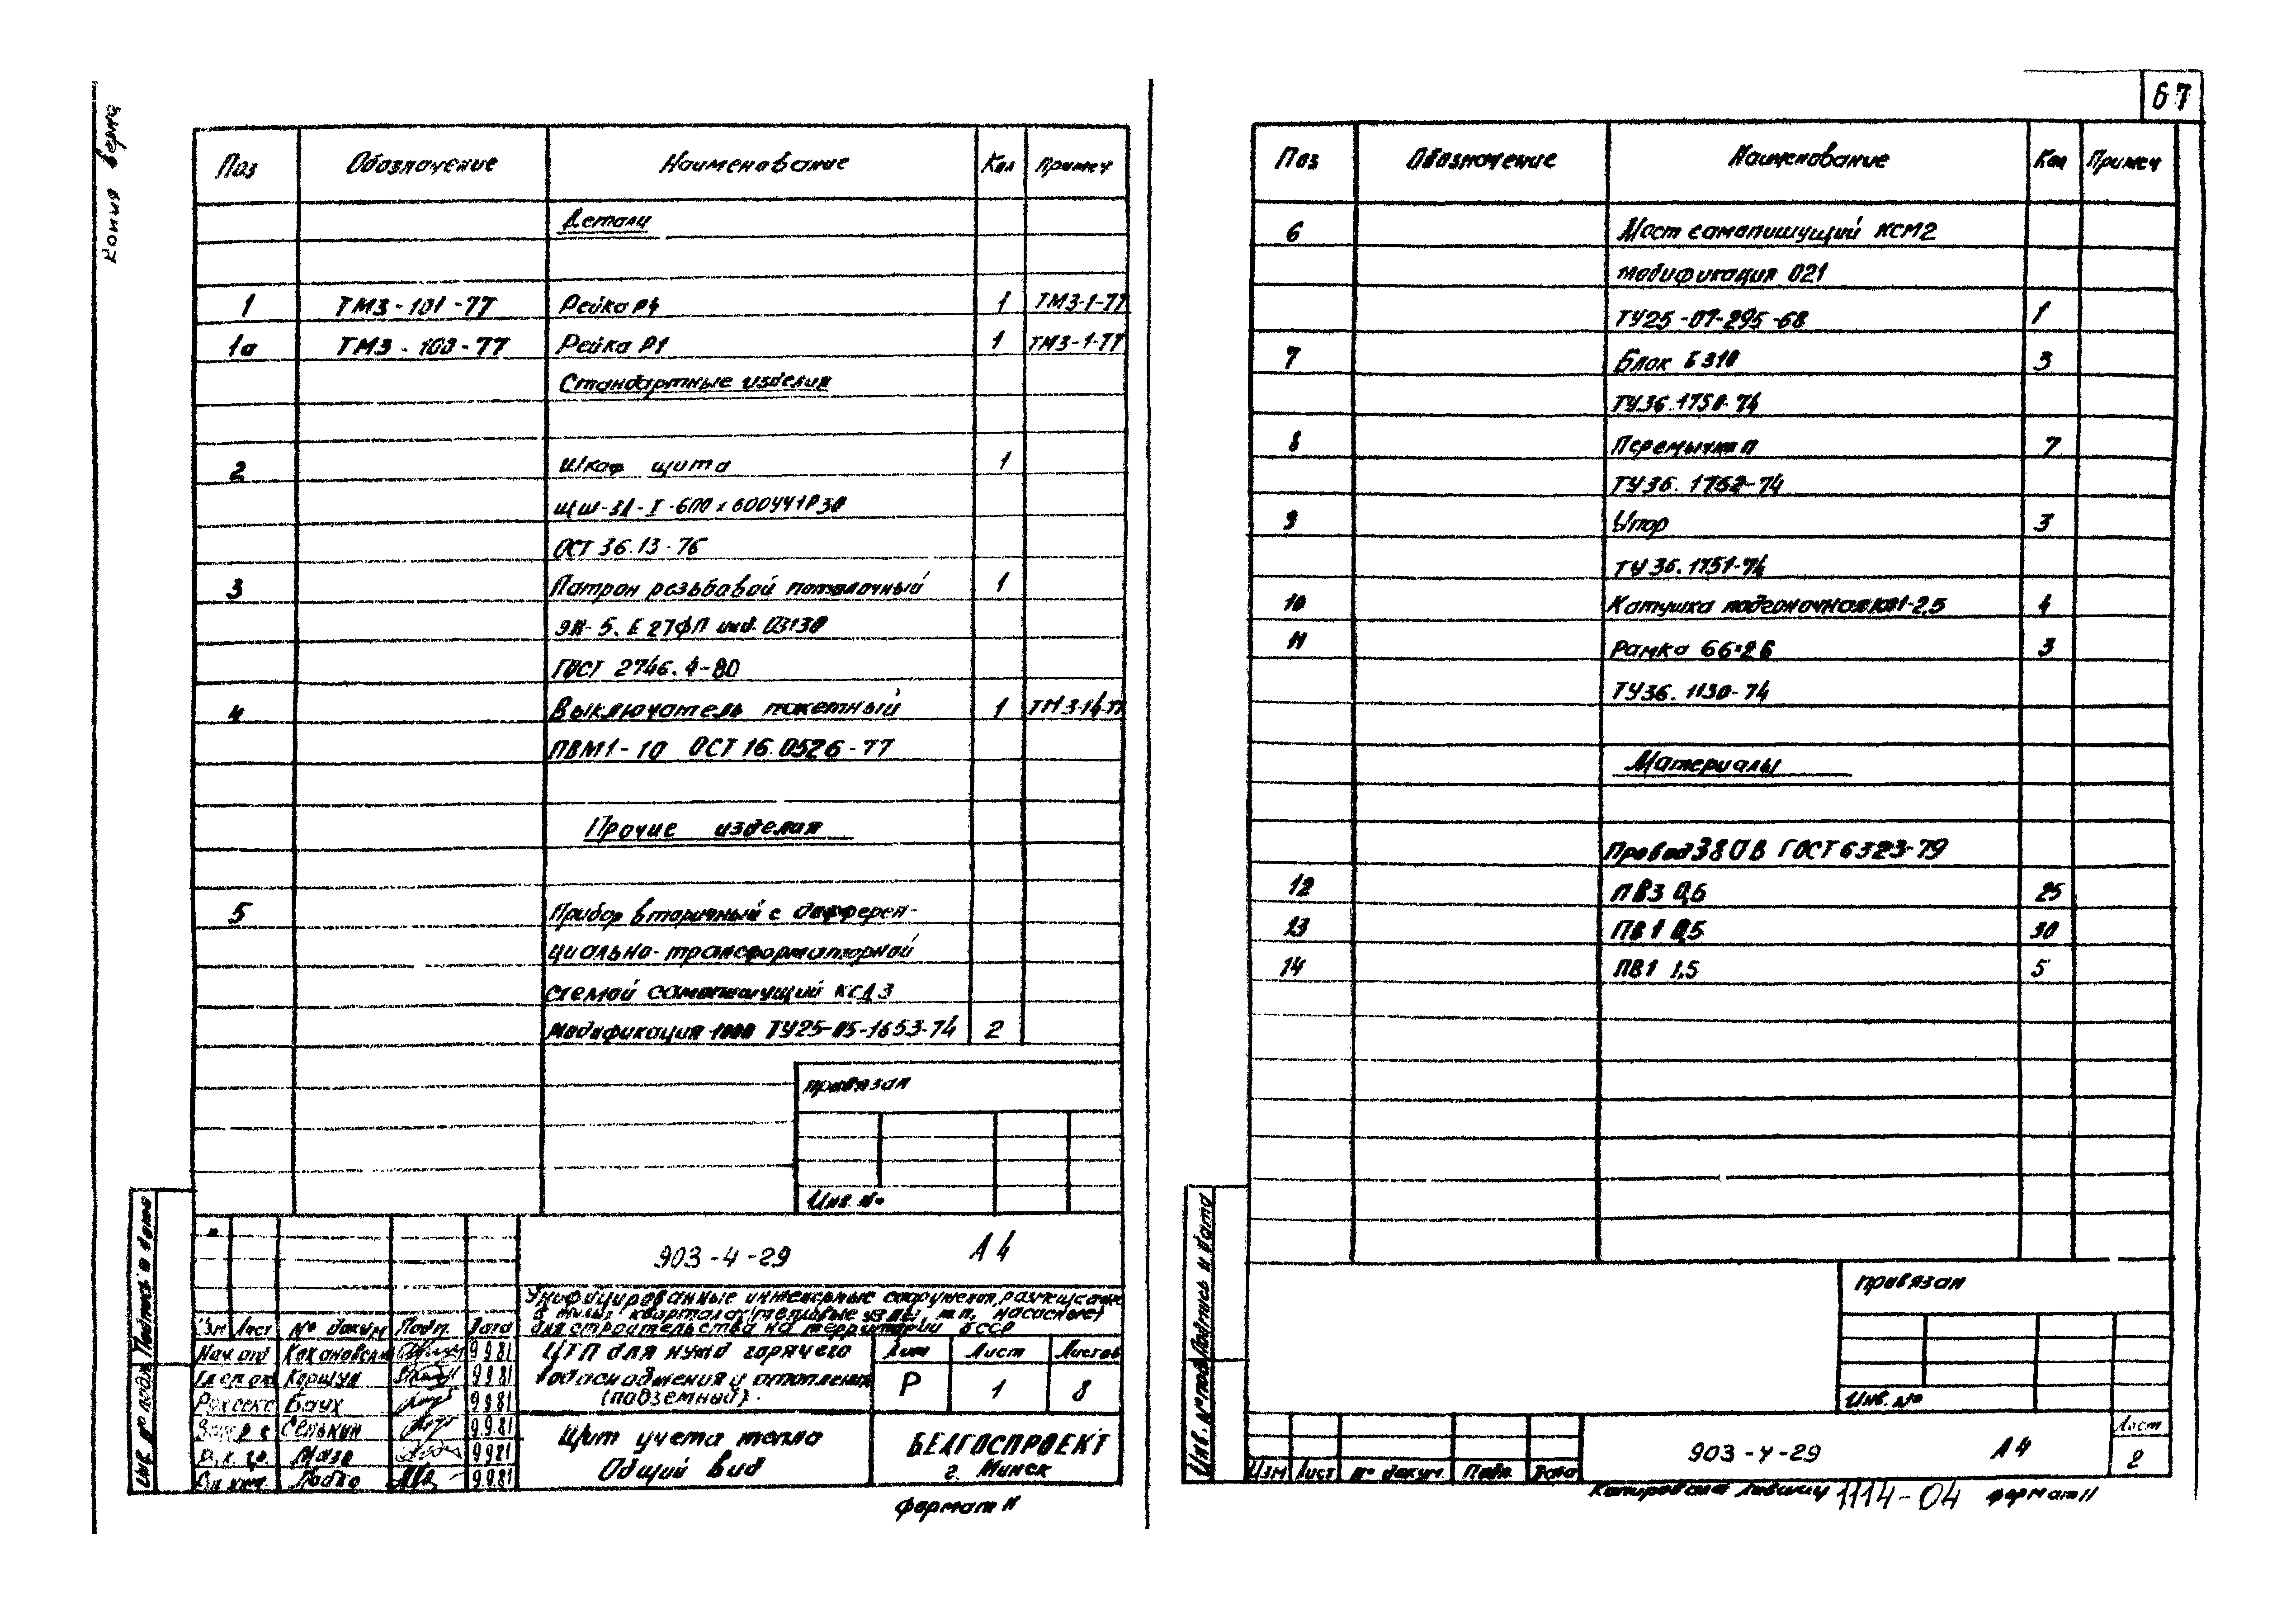 Копия верна
Поз Обозначение Наименование Кол Примеч
Детали
1 ТМ3-101-77 Рейка Р4 1 ТМ3-1-77
1а ТМ3-100-77 Рейка Р1 1 ТМ3-1-77
Стандартные изделия
2 Шкаф щита 1
ЩШ-3Д-I-600х600У41Р30
ОСТ 36.13-76
3 Патрон резьбовой потолочный 1
Е27ФП инд. 03130
ГОСТ 2746.4-80
4 Выключатель пакетный 1 ТМ3-14-77
ПВМ1-10 ОСТ 16.0526-77
Прочие изделия
5 Прибор вторичный с дифферен-
циально-трансформаторной
схемой самопишущий КСД3
модификация 1000 ТУ25-05-1653-74 2
привязан
Инв. №
903-4-29 А4
Унифицированные инженерные сооружения, размещаемые
в жилых кварталах (тепловые узлы, т.п, насосные)
для строительства на территории БССР
Изм Лист № докум Подп. Дата
Нач. отд 9.9.81
Коршун 9.9.81
Рук сект. Баух 9.9.81
Сенькин 9.9.81
Мазо 9.9.81
9.9.81
ЦТП для нужд горячего
водоснабжения и отопления
(подземный).
Лит Лист Листов
Р 1 8
Щит учета тепла
Общий вид
БЕЛГОСПРОЕКТ
г. Минск
Формат 11
Инв. № подл Подпись и дата
67
Поз Обозначение Наименование Кол Примеч
6 Мост самопишущий КСМ2
модификация 021
ТУ25-07-295-68 1
7 Блок Б310 3
ТУ36.1750-74
8 Перемычка П 7
ТУ36.1752-74
9 Упор 3
ТУ36.1751-74
10 Катушка подгоночная КП1-2,5 4
11 Рамка 66х26 3
ТУ36.1130-74
Материалы
Провод 380В ГОСТ 6323-79
12 ПВ3 0,5 25
13 ПВ1 0,5 30
14 ПВ1 1,5 5
привязан
Инв. №
Изм Лист № докум. Подп. Дата
903-4-29 А4
Лист
2
Инв. № подл Подпись и дата
Копировала 1114-04 формат 11